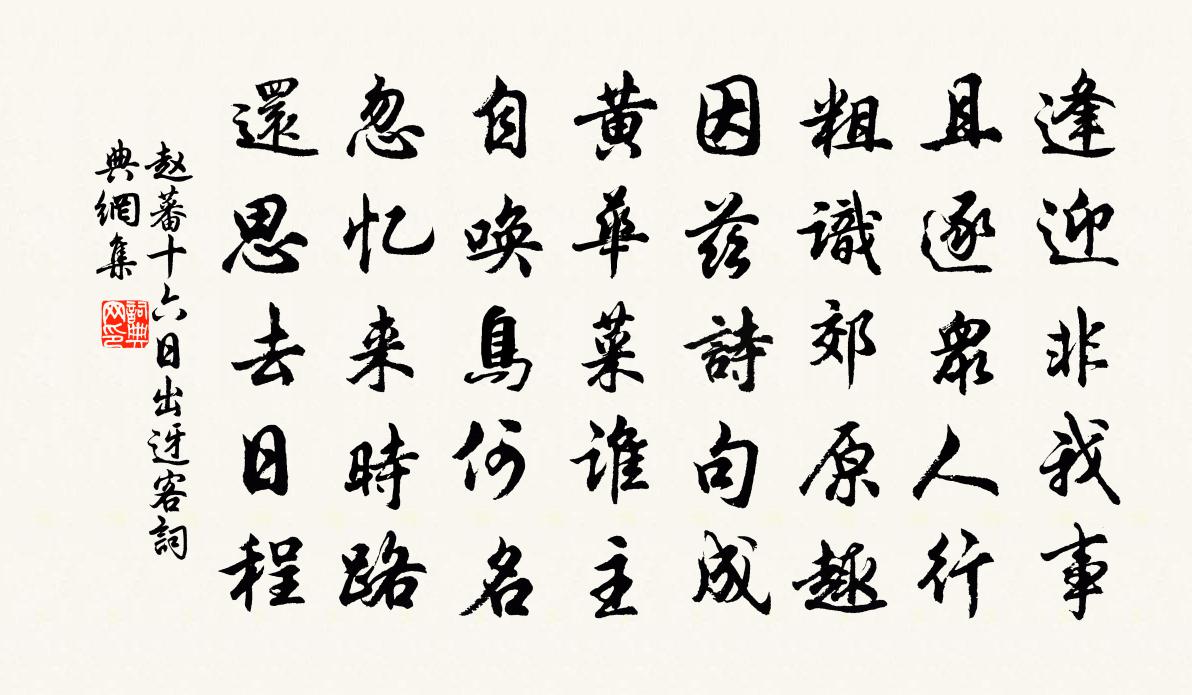 逢迎非我事
且逐衆人行
粗識郊原趣
因茲詩句成
黄華菜誰主
自喚鳥何名
忽忆来時路
還思去日程
赵蕃十六日出迓客詞
典網集
詞典网印